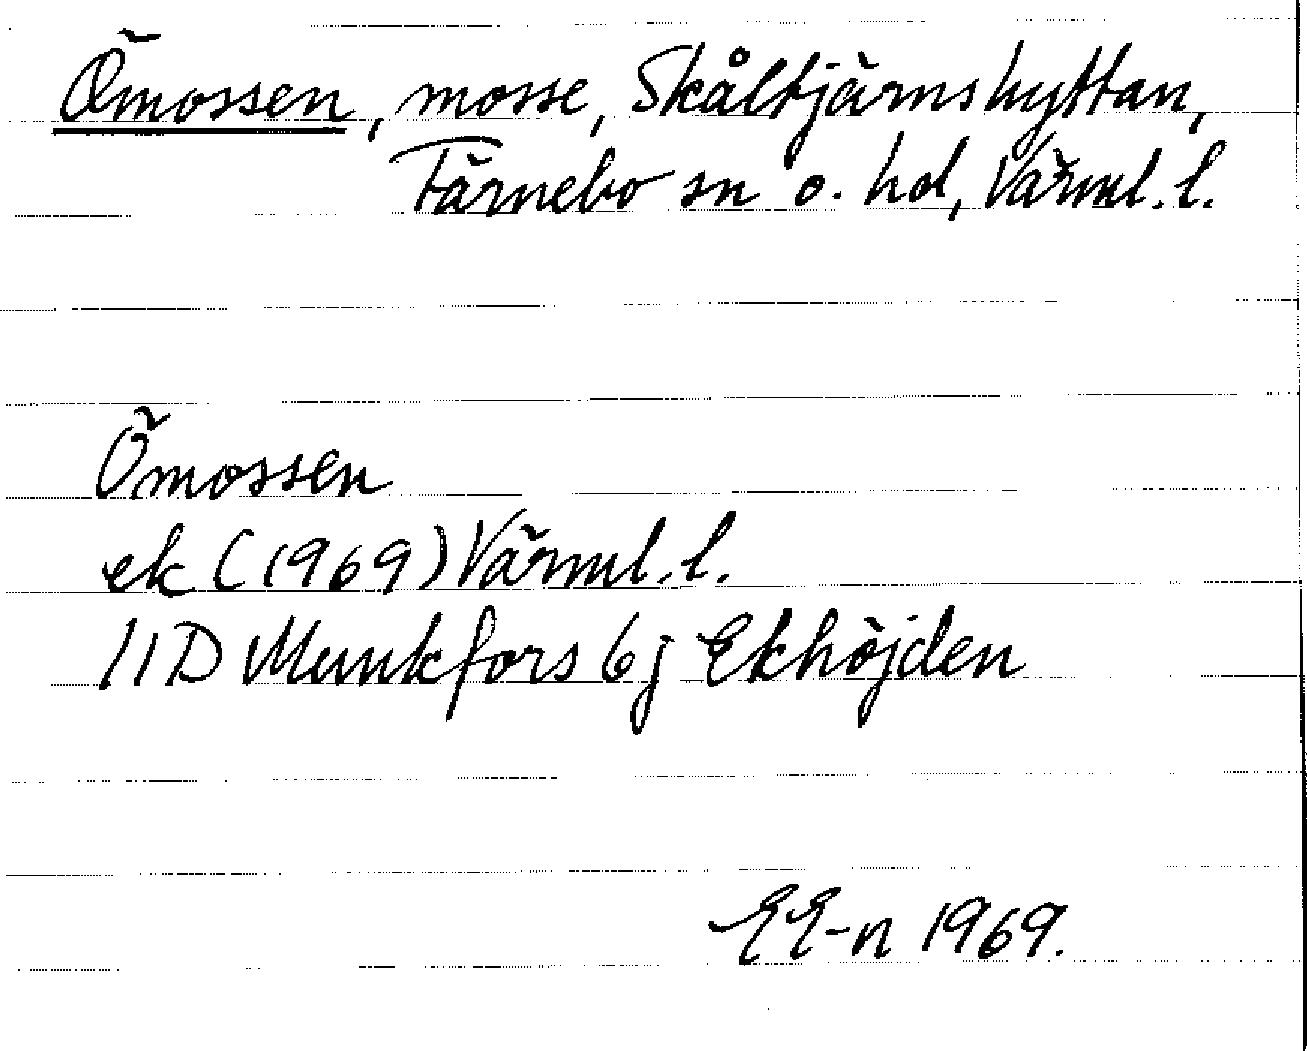 Ömossen, mosse, Skåltjärnshyttan,
Färnebo sn o. hd, Värml. l.
Ömossen
ek (1969) Värml. l.
11D Munkfors 6j Ekhöjden
EE-n 1969.